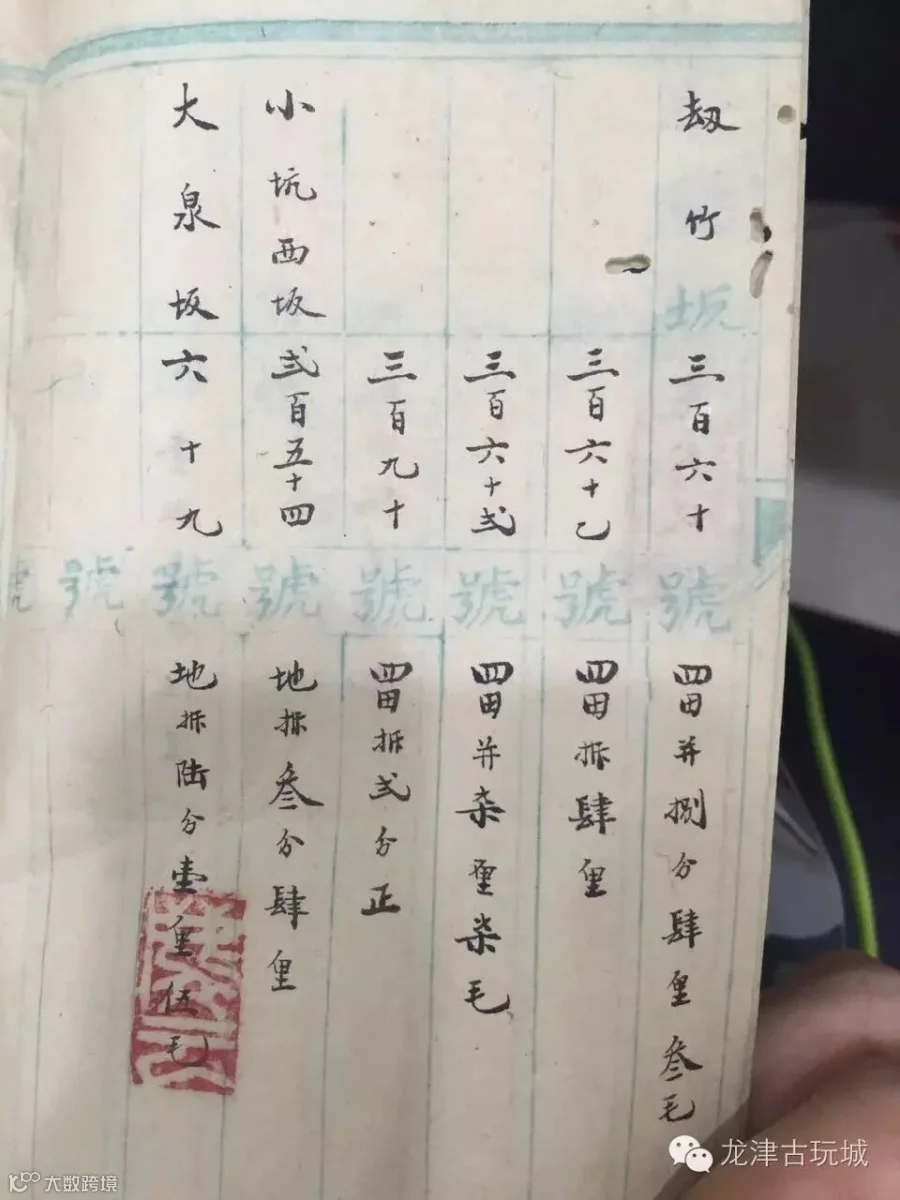 刼竹坂三百六十號四田并捌分肆厘叁毛
三百六十乙號四田拆肆厘
三百六十弍號四田并柒厘柒毛
三百九十號四田拆弍分正
小坑西坂弍百五十四號地拆叁分肆厘
大泉坂六十九號地拆陆分壹厘伍毛
號
號
龙津古玩城
大数跨境